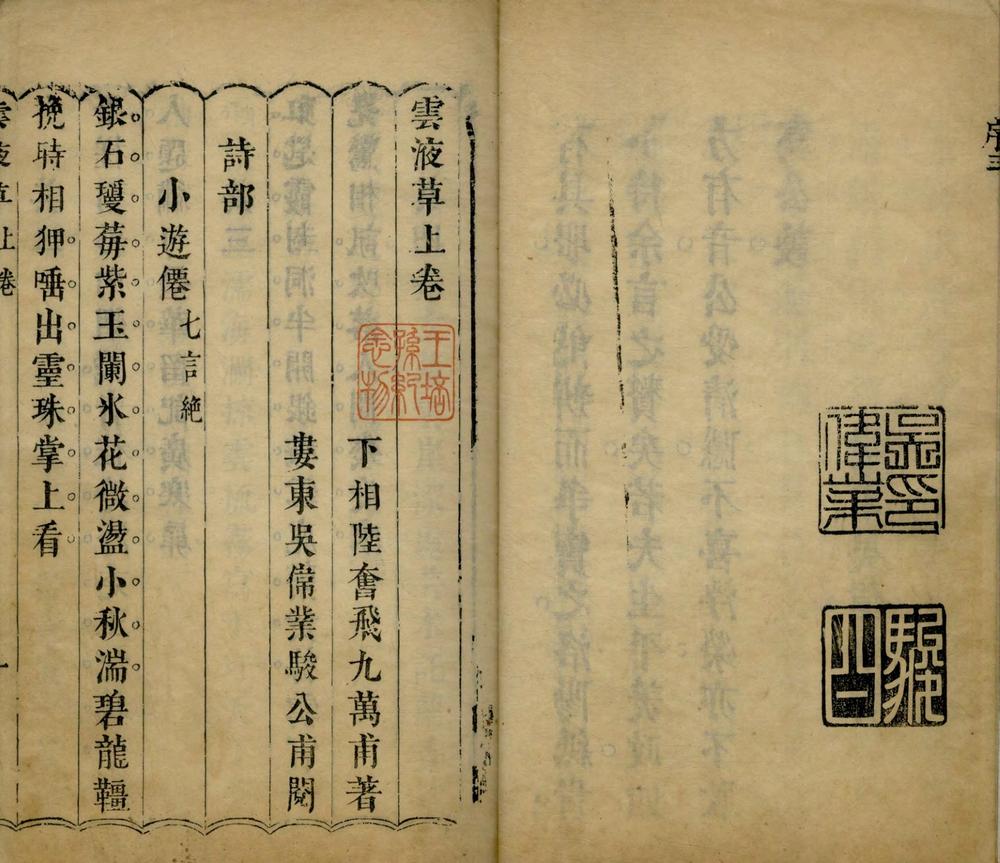 序三
吳偉業印
駿公
雲液草上卷
王培孫紀念物
下相陸奮飛九萬甫著
婁東吳偉業駿公甫閱
詩部
小遊僊 七言絕
銀石璎苺紫玉闌氷花微盪小秋湍碧龍韁
挽時相狎唾出靈珠掌上看
雲液草上卷 一